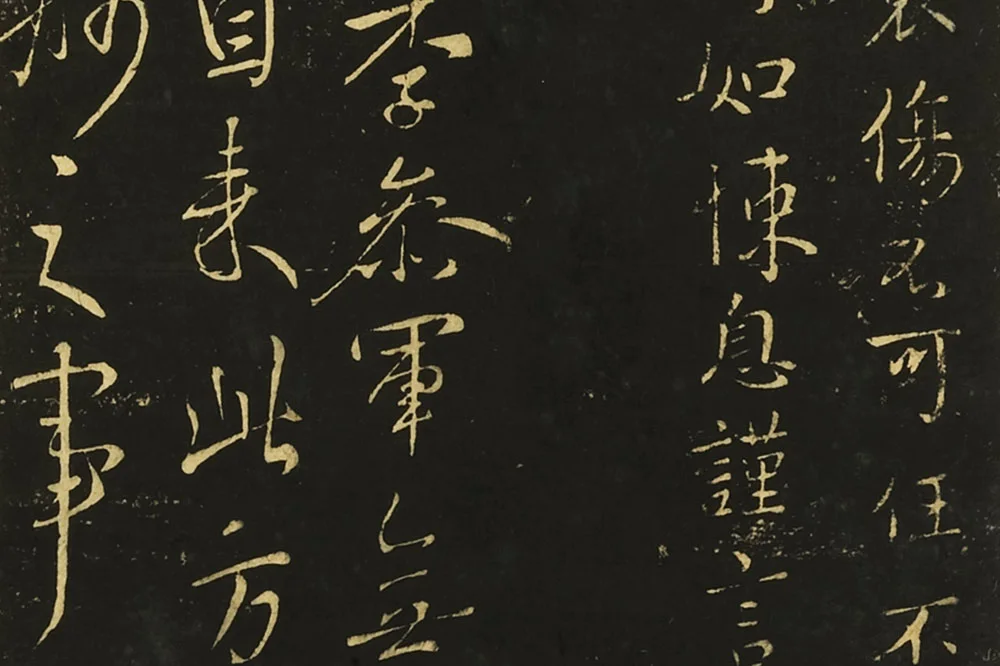 傷不可任不
如悚息謹言
李參軍
自來此方
之事